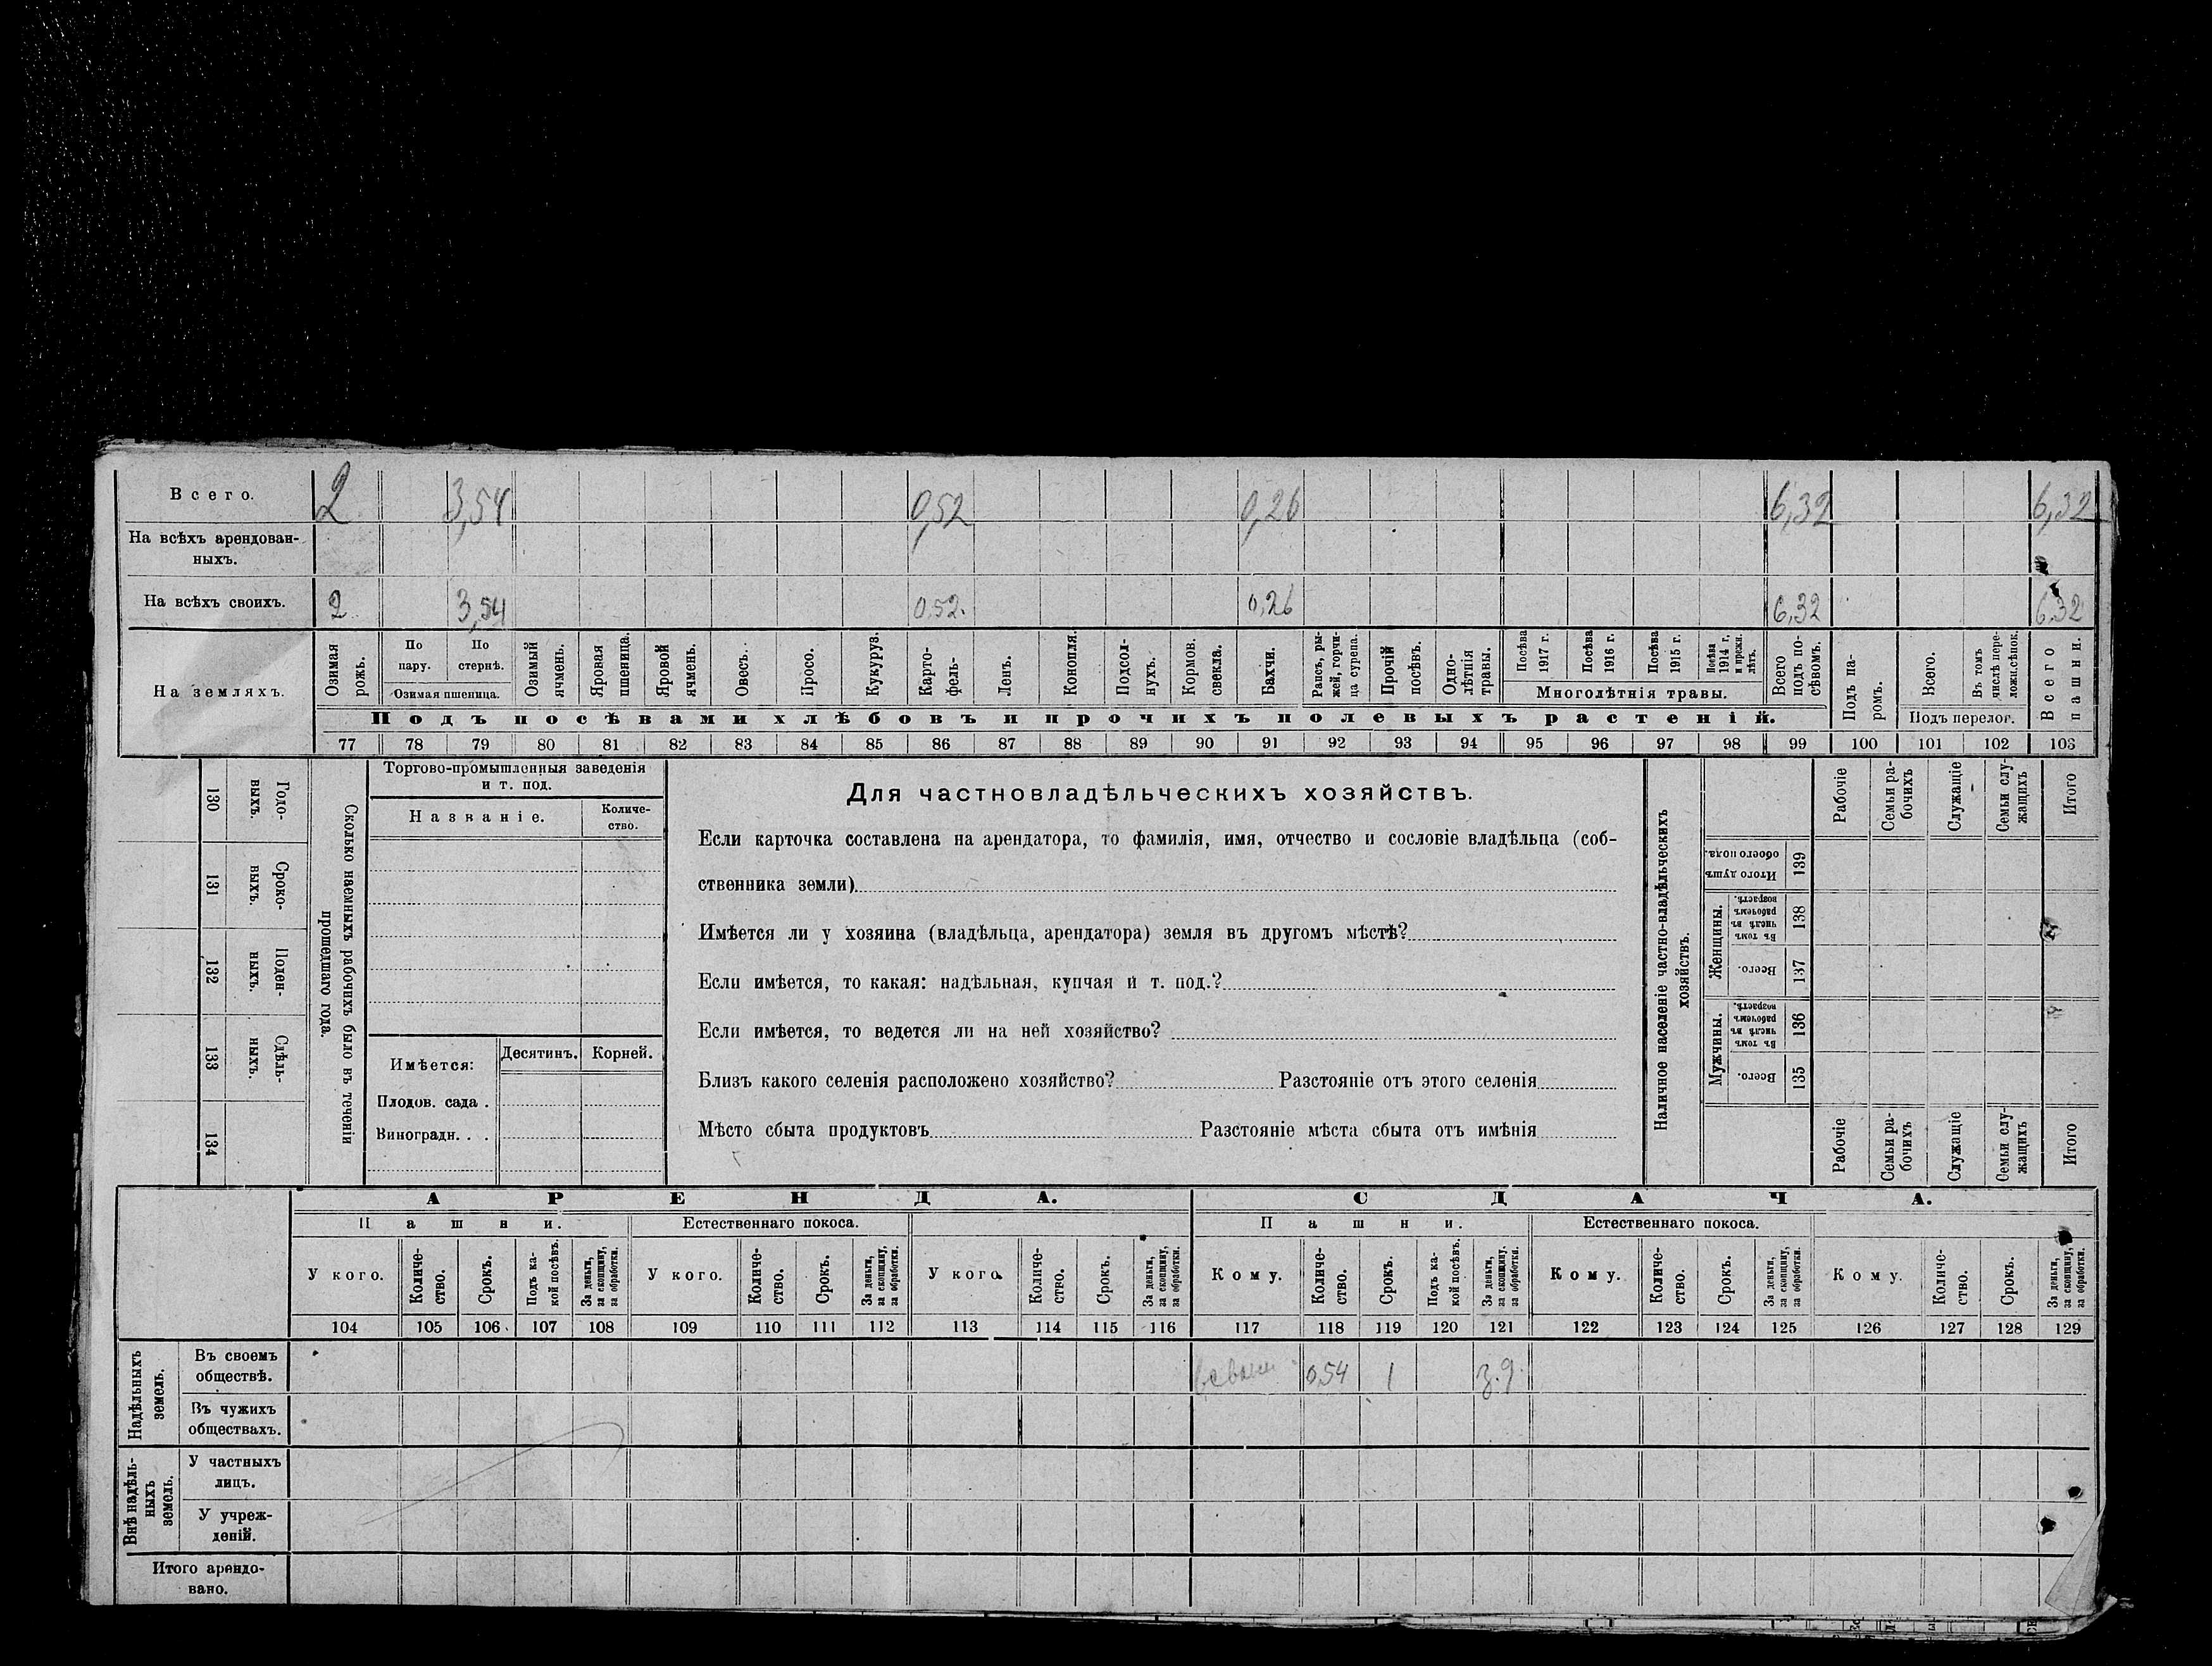 Всего. 2 3,54 0,52 0,26 6,32 6,32
На всѣхъ арендован-
ныхъ.
На всѣхъ своихъ. 2 3,54 0,52. 0,26 6,32 6,32
На земляхъ.
Озимая рожь.
По пару.
По стернѣ.
Озимая пшеница.
Озимый ячмень.
Яровая пшеница.
Яровой ячмень.
Овесъ.
Просо.
Кукуруз.
Карто-
фель-
Ленъ.
Конопля.
Подсол-
нухъ.
Кормов. свекла.
Бахчи.
Рапсъ, ры-
жей, горчи-
ца сурепа.
Прочій посѣвъ.
Одно-
лѣтнія травы.
Посѣва 1917 г.
Посѣва 1916 г.
Посѣва 1915 г.
Посѣва 1914 г. и прежн. лѣтъ.
Многолѣтнія травы.
Всего подъ по-
сѣвомъ.
Подъ посѣвами хлѣбовъ и прочихъ полевыхъ растеній.
Подъ па-
ромъ.
Всего.
Въ томъ числѣ пере-
ложн.сѣнок.
Подъ перелог.
Всего пашни.
77 78 79 80 81 82 83 84 85 86 87 88 89 90 91 92 93 94 95 96 97 98 99 100 101 102 103
130 Годо-
выхъ.
131 Сроко-
выхъ.
132 Поден-
ныхъ.
133 Сдѣль-
ныхъ.
134
Сколько наемныхъ рабочихъ было въ теченіи
прошедшаго года.
Торгово-промышленныя заведенія
и т. под.
Названіе.
Количе-
ство.
Имѣется: Десятинъ. Корней.
Плодов. сада .
Виноградн. . .
Для частновладѣльческихъ хозяйствъ.
Если карточка составлена на арендатора, то фамилія, имя, отчество и сословіе владѣльца (соб-
ственника земли)
Имѣется ли у хозяина (владѣльца, арендатора) земля въ другомъ мѣстѣ?
Если имѣется, то какая: надѣльная, купчая и т. под.?
Если имѣется, то ведется ли на ней хозяйство?
Близъ какого селенія расположено хозяйство? Разстояніе отъ этого селенія
Мѣсто сбыта продуктовъ Разстояніе мѣста сбыта отъ имѣнія
Наличное населеніе частно-владѣльческихъ
хозяйствъ.
Рабочіе
Семьи ра-
бочихъ
Служащіе
Семьи слу-
жащихъ
Итого
Итого душъ обоего пола. 139
Женщины.
Въ томъ числѣ въ рабочемъ возрастѣ. 138
Всего. 137
Мужчины.
Въ томъ числѣ въ рабочемъ возрастѣ. 136
Всего. 135
Рабочіе
Семьи ра-
бочихъ
Служащіе
Семьи слу-
жащихъ
Итого
АРЕНДА. СДАЧА.
Пашни. Естественнаго покоса. Пашни. Естественнаго покоса.
У кого.
Количе-
ство.
Срокъ.
Подъ ка-
кой посѣвъ.
За деньги, за скопщину, за обработки.
У кого.
Количе-
ство.
Срокъ.
За деньги, за скопщину, за обработки.
У кого.
Количе-
ство.
Срокъ.
За деньги, за скопщину, за обработки.
Кому.
Количе-
ство.
Срокъ.
Подъ ка-
кой посѣвъ.
За деньги, за скопщину, за обработки.
Кому.
Количе-
ство.
Срокъ.
За деньги, за скопщину, за обработки.
Кому.
Количе-
ство.
Срокъ.
За деньги, за скопщину, за обработки.
104 105 106 107 108 109 110 111 112 113 114 115 116 117 118 119 120 121 122 123 124 125 126 127 128 129
Надѣльныхъ земель.
Въ своемъ
обществѣ. 0,54 1 з.д.
Въ чужихъ
обществахъ.
Внѣ надѣль-
ныхъ земель.
У частныхъ
лицъ.
У учреж-
деній.
Итого арендо-
вано.